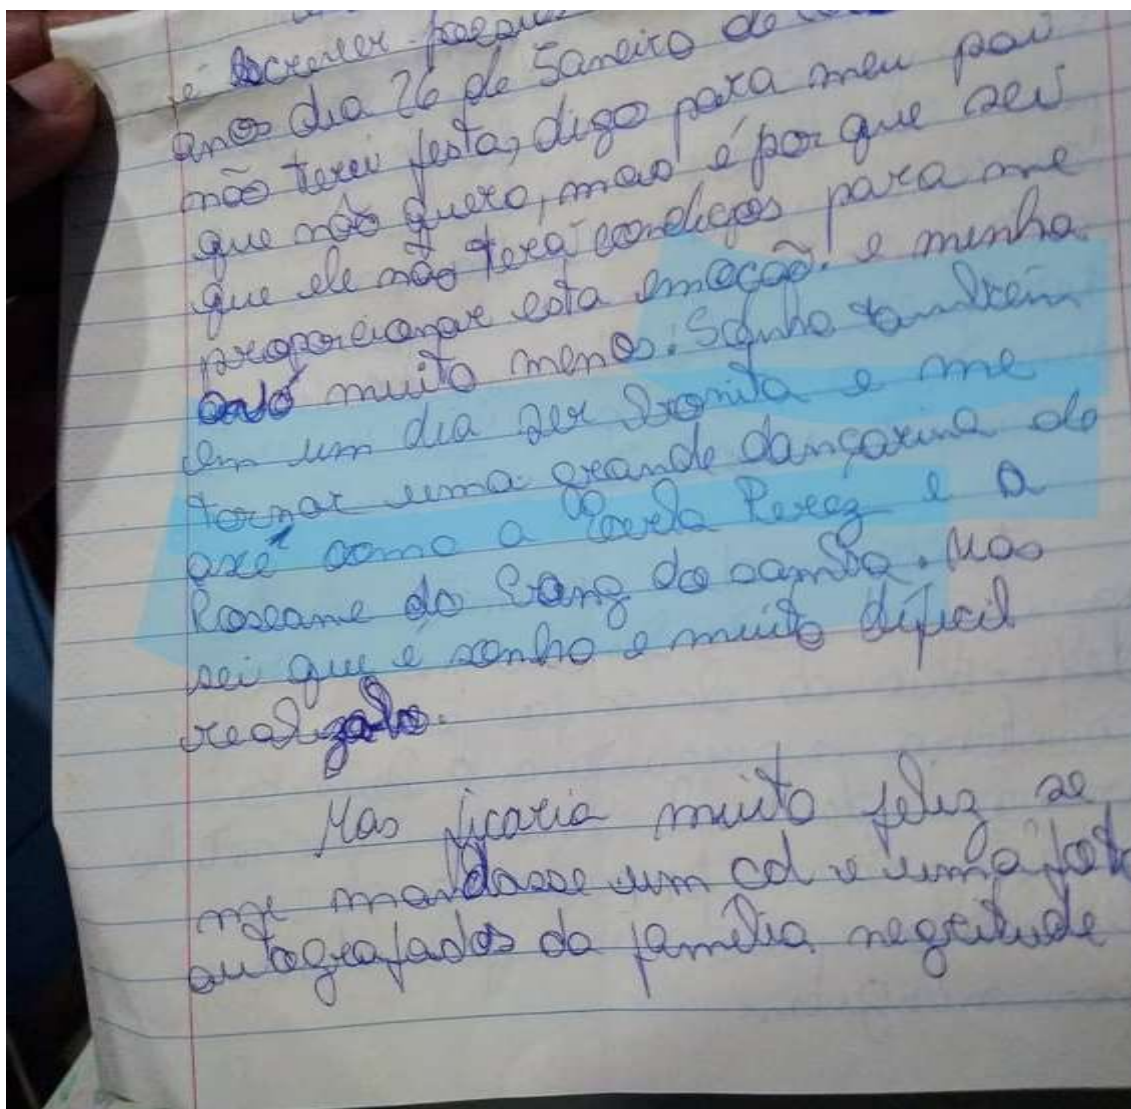 é escrever
anos dia 26 de Janeiro de
não terei festa, digo para meu pai
que não quero, mas é por que sei
que ele não terá condiçoes para me
proporcionar esta emoção. e minha
avó muito menos. Sonho também
em um dia ser bonita e me
tornar uma grande dançarina do
axé como a Carla Perez e a
Roseane do Bang do samba. Mas
sei que é sonho e muito dificil
realizalo.
Mas ficaria muito feliz se
me mandasse um cd e uma foto
autografados da familia negritude